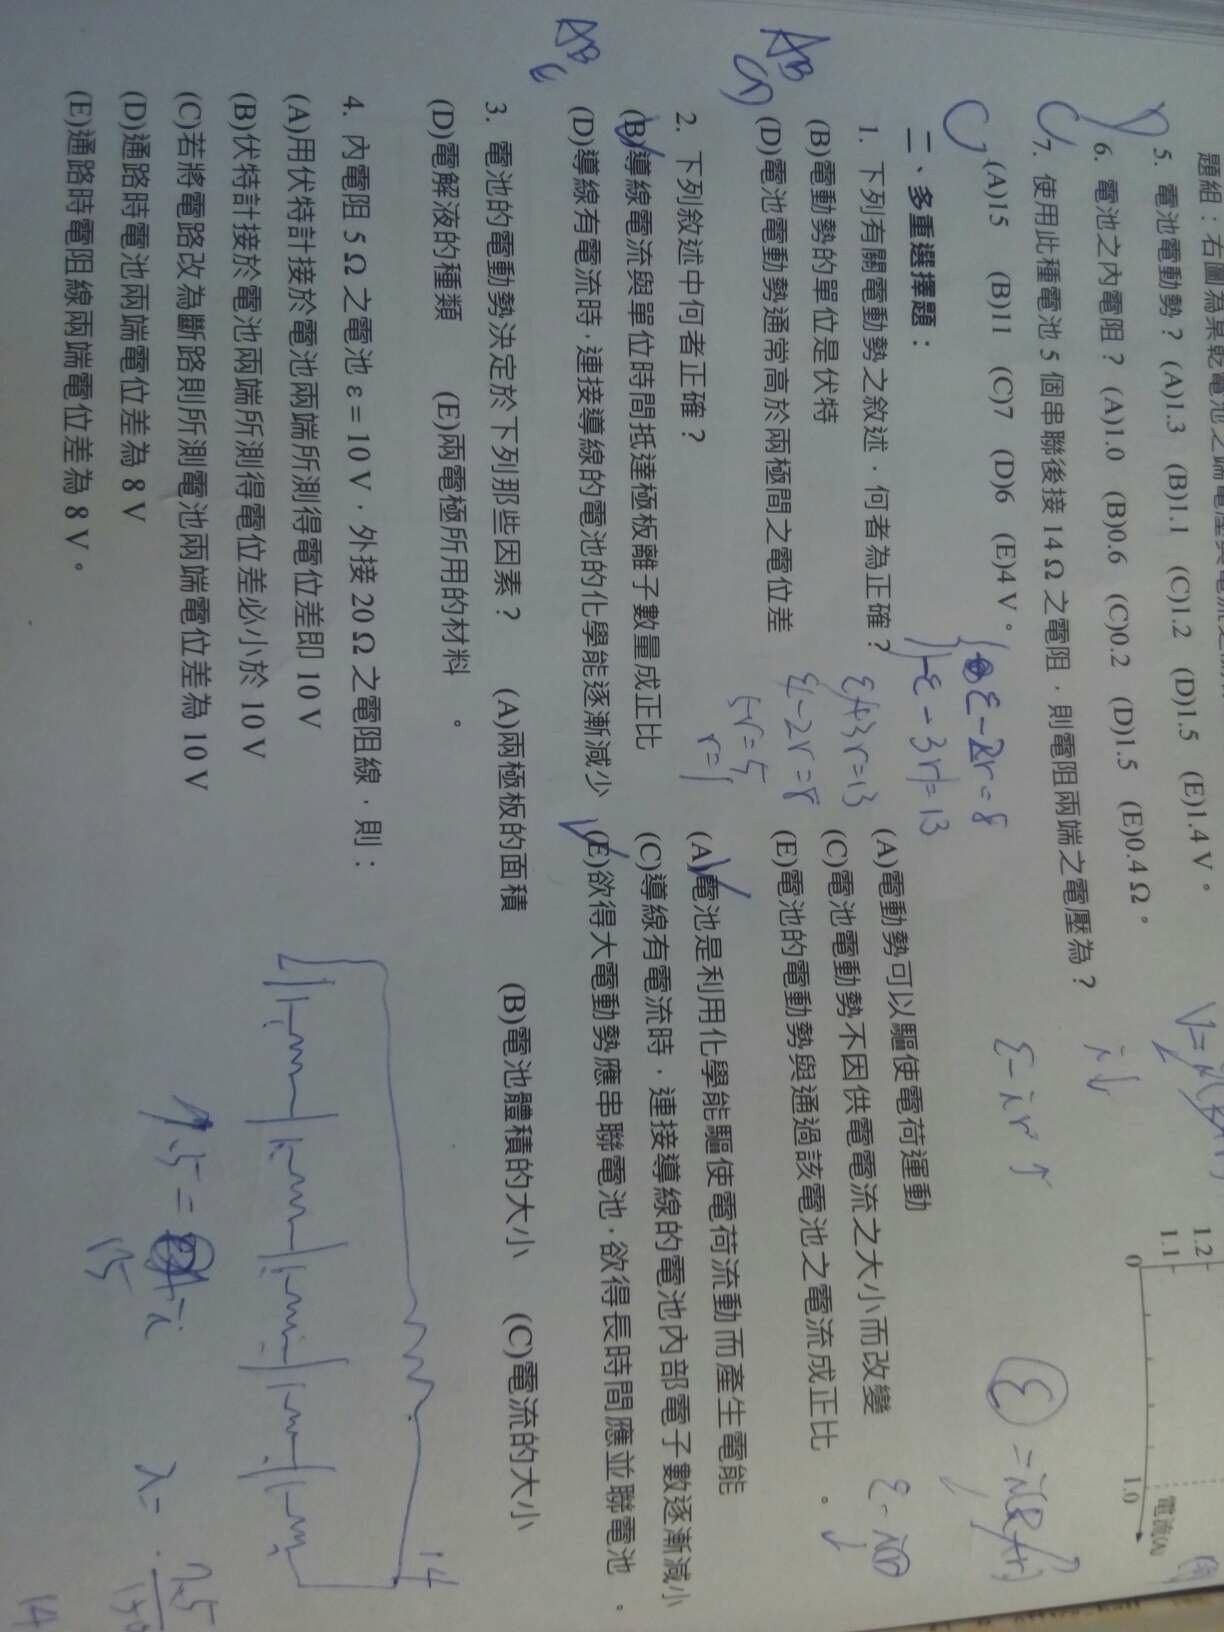 5. 電池電動勢？ (A)1.3 (B)1.1 (C)1.2 (D)1.5 (E)1.4 V。
6. 電池之內電阻？ (A)1.0 (B)0.6 (C)0.2 (D)1.5 (E)0.4 Ω。
7. 使用此種電池 5 個串聯後接 14 Ω 之電阻，則電阻兩端之電壓為？
(A)15 (B)11 (C)7 (D)6 (E)4 V。
二、多重選擇題：
1. 下列有關電動勢之敘述，何者為正確？ (A)電動勢可以驅使電荷運動
(B)電動勢的單位是伏特 (C)電池電動勢不因供電電流之大小而改變
(D)電池電動勢通常高於兩極間之電位差 (E)電池的電動勢與通過該電池之電流成正比。
2. 下列敘述中何者正確？ (A)電池是利用化學能驅使電荷流動而產生電能
(B)導線電流與單位時間抵達極板離子數量成正比 (C)導線有電流時，連接導線的電池內部電子數逐漸減小
(D)導線有電流時，連接導線的電池的化學能逐漸減少 (E)欲得大電動勢應串聯電池，欲得長時間應並聯電池。
3. 電池的電動勢決定於下列那些因素？ (A)兩極板的面積 (B)電池體積的大小 (C)電流的大小
(D)電解液的種類 (E)兩電極所用的材料。
4. 內電阻 5 Ω 之電池 ε = 10 V，外接 20 Ω 之電阻線，則：
(A)用伏特計接於電池兩端所測得電位差即 10 V
(B)伏特計接於電池兩端所測得電位差必小於 10 V
(C)若將電路改為斷路則所測電池兩端電位差為 10 V
(D)通路時電池兩端電位差為 8 V
(E)通路時電阻線兩端電位差為 8 V。
1.2
1.1
0
1.0
電流(A)
AB
ε-2r=8
ε-3r=13
ε-2r=8
r=1
14
7.5